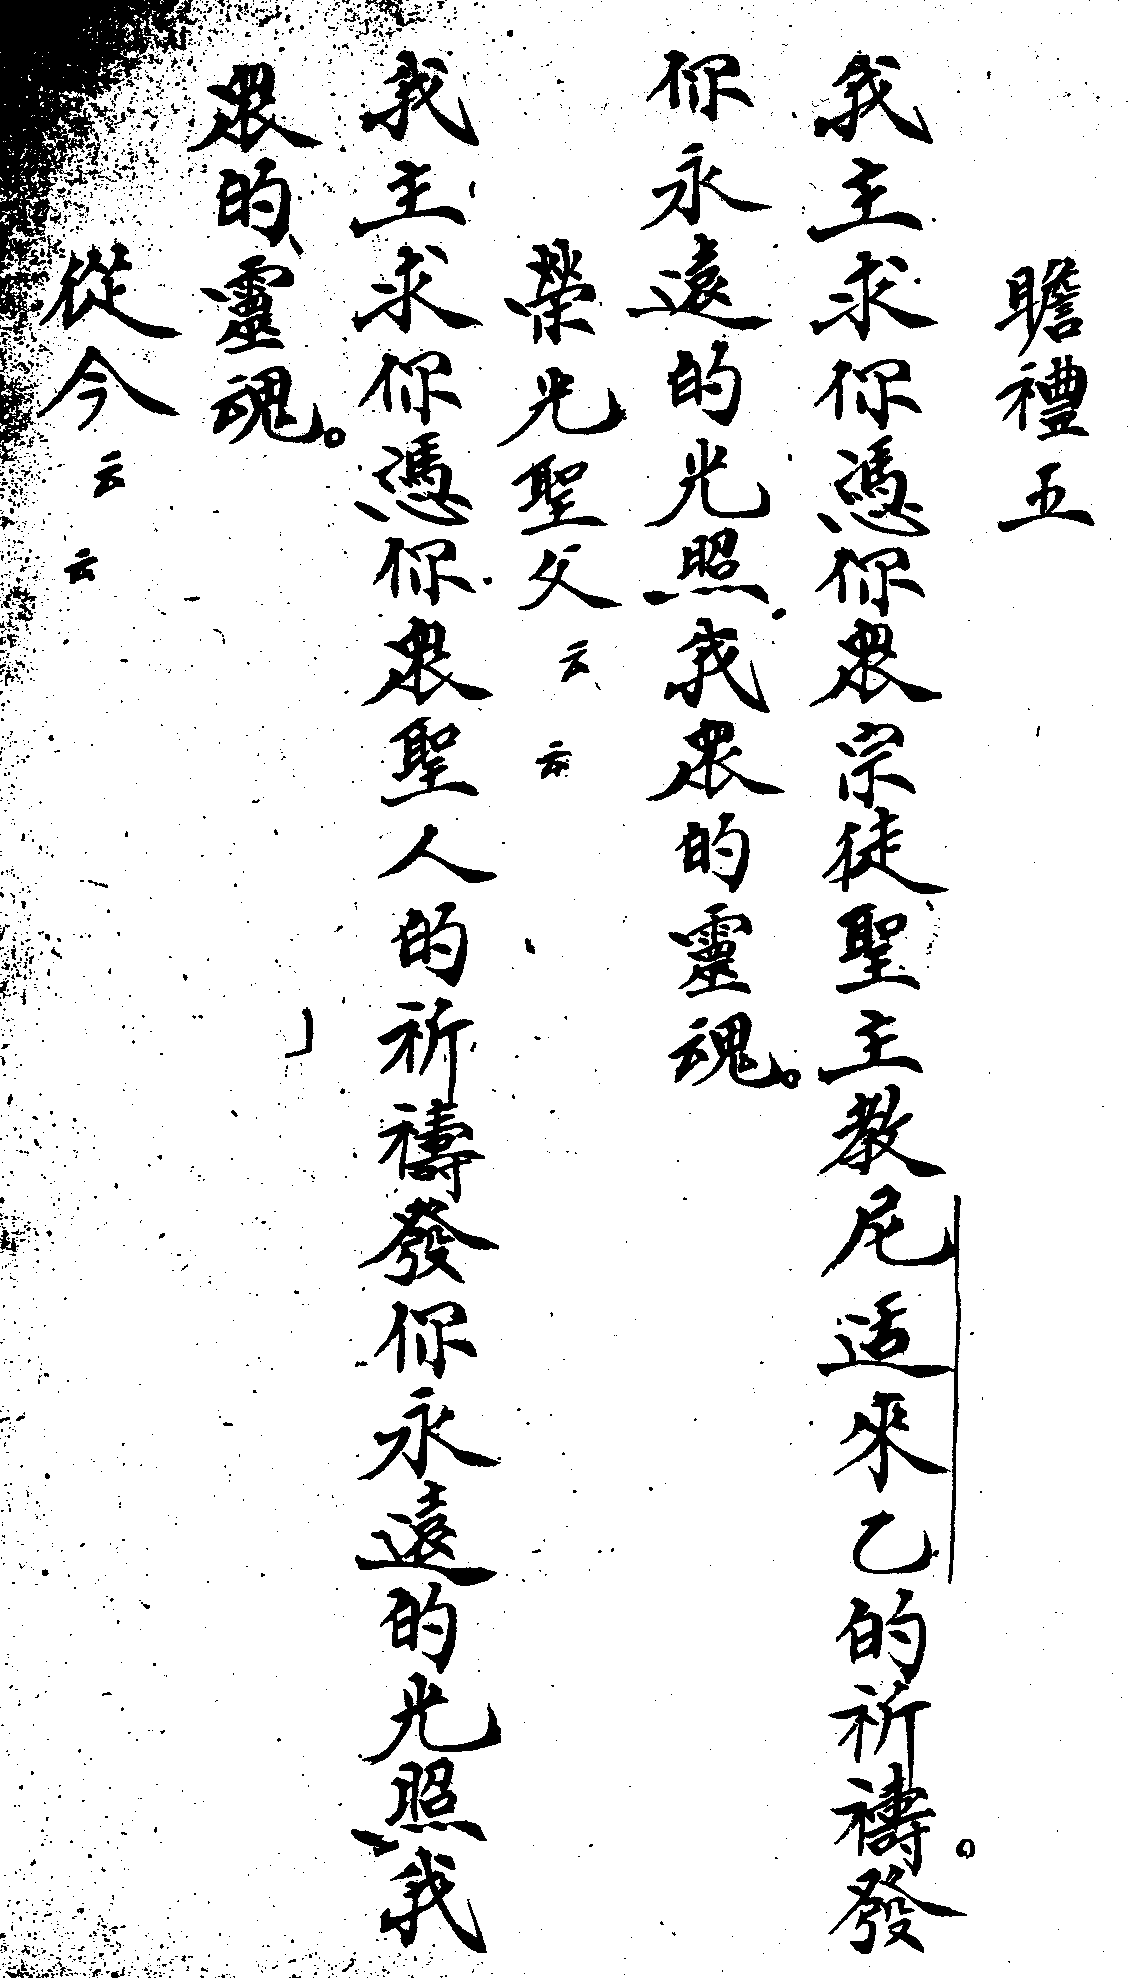 瞻禮五
我主求你憑你眾宗徒聖主教尼适來乙的祈禱。發
你永遠的光照我眾的靈魂。
榮光聖父云云
我主求你憑你眾聖人的祈禱發你永遠的光照我
眾的靈魂。
從今云云